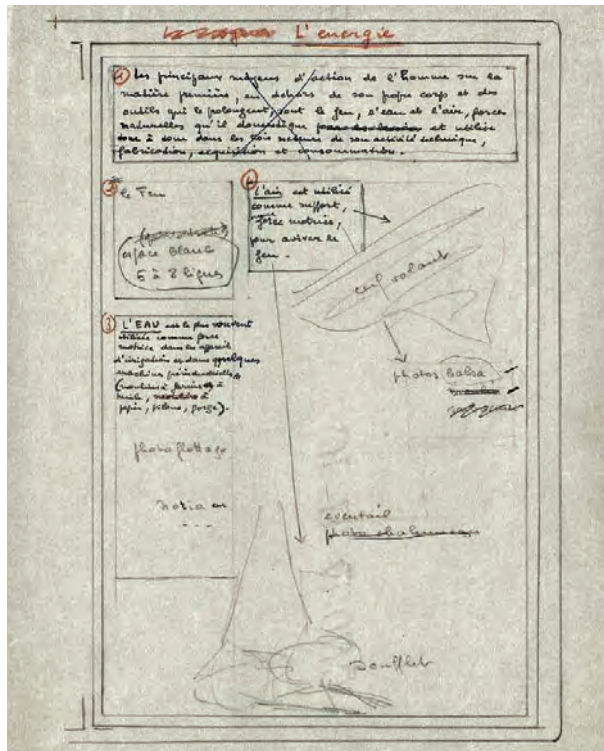 L'energie
1 Les principaux moyens d'action de l'homme sur la
matière première, en dehors de son propre corps et des
outils qui le prolongent, sont le feu, l'eau et l'air, forces
naturelles qu'il domestique et utilise
tour à tour dans les trois secteurs de son activité technique,
fabrication, acquisition et consommation.
2 le Feu
espace blanc
5 à 8 lignes
L'air est utilisé
comme support,
force motrice,
pour aviver le
feu.
cerf volant
3 L'EAU est le plus souvent
utilisée comme force
motrice dans les appareils
d'irrigation et dans quelques
machines préindustrielles
(moulins à farine, à
huile, à
papier, pilons, forge).
photos balsa
photo flottage
noria en
- - -
eventail
photo chalumeau
soufflet